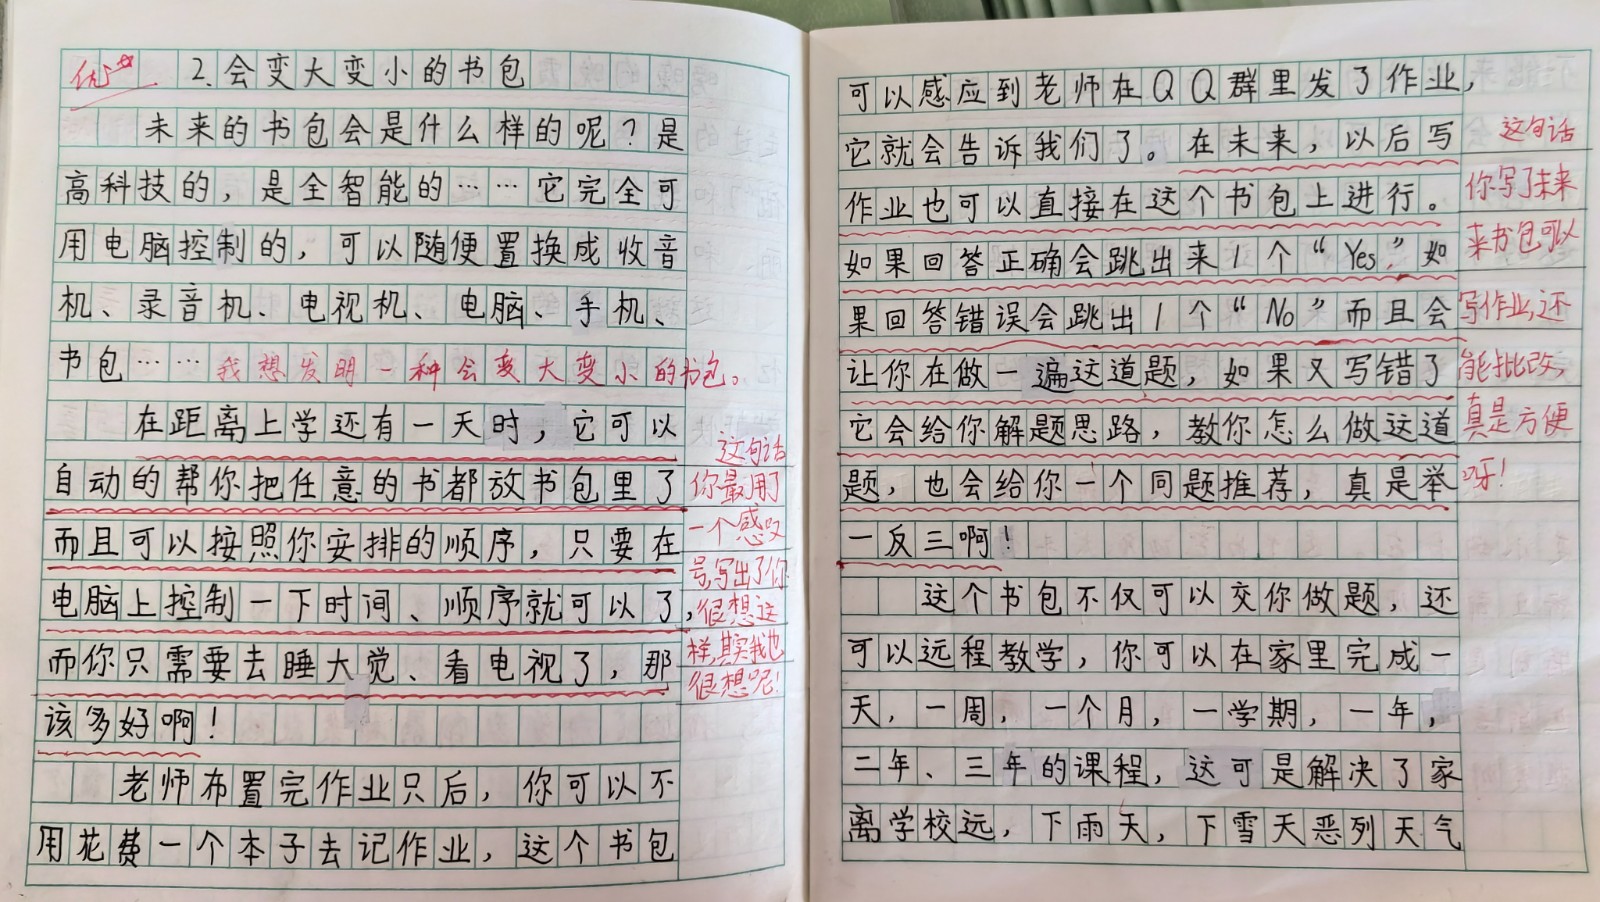 优
2.会变大变小的书包
未来的书包会是什么样的呢？是
高科技的，是全智能的……它完全可
用电脑控制的，可以随便置换成收音
机、录音机、电视机、电脑、手机、
书包……我想发明一种会变大变小的书包。
在距离上学还有一天时，它可以
自动的帮你把任意的书都放书包里了
而且可以按照你安排的顺序，只要在
电脑上控制一下时间、顺序就可以了，
而你只需要去睡大觉、看电视了，那
该多好啊！
老师布置完作业只后，你可以不
用花费一个本子去记作业，这个书包
这句话
你最用了
一个感叹
号,写出了你
很想这
样,其实我也
很想呢!
可以感应到老师在QQ群里发了作业，
它就会告诉我们了。在未来，以后写
作业也可以直接在这个书包上进行。
如果回答正确会跳出来1个“Yes”如
果回答错误会跳出1个“No”而且会
让你在做一遍这道题，如果又写错了
它会给你解题思路，教你怎么做这道
题，也会给你一个同题推荐，真是举
一反三啊！
这个书包不仅可以交你做题，还
可以远程教学，你可以在家里完成一
天，一周，一个月，一学期，一年，
二年、三年的课程，这可是解决了家
离学校远，下雨天，下雪天恶列天气
这句话
你写了未来
来书包可以
写作业,还
能批改,
真是方便
呀!